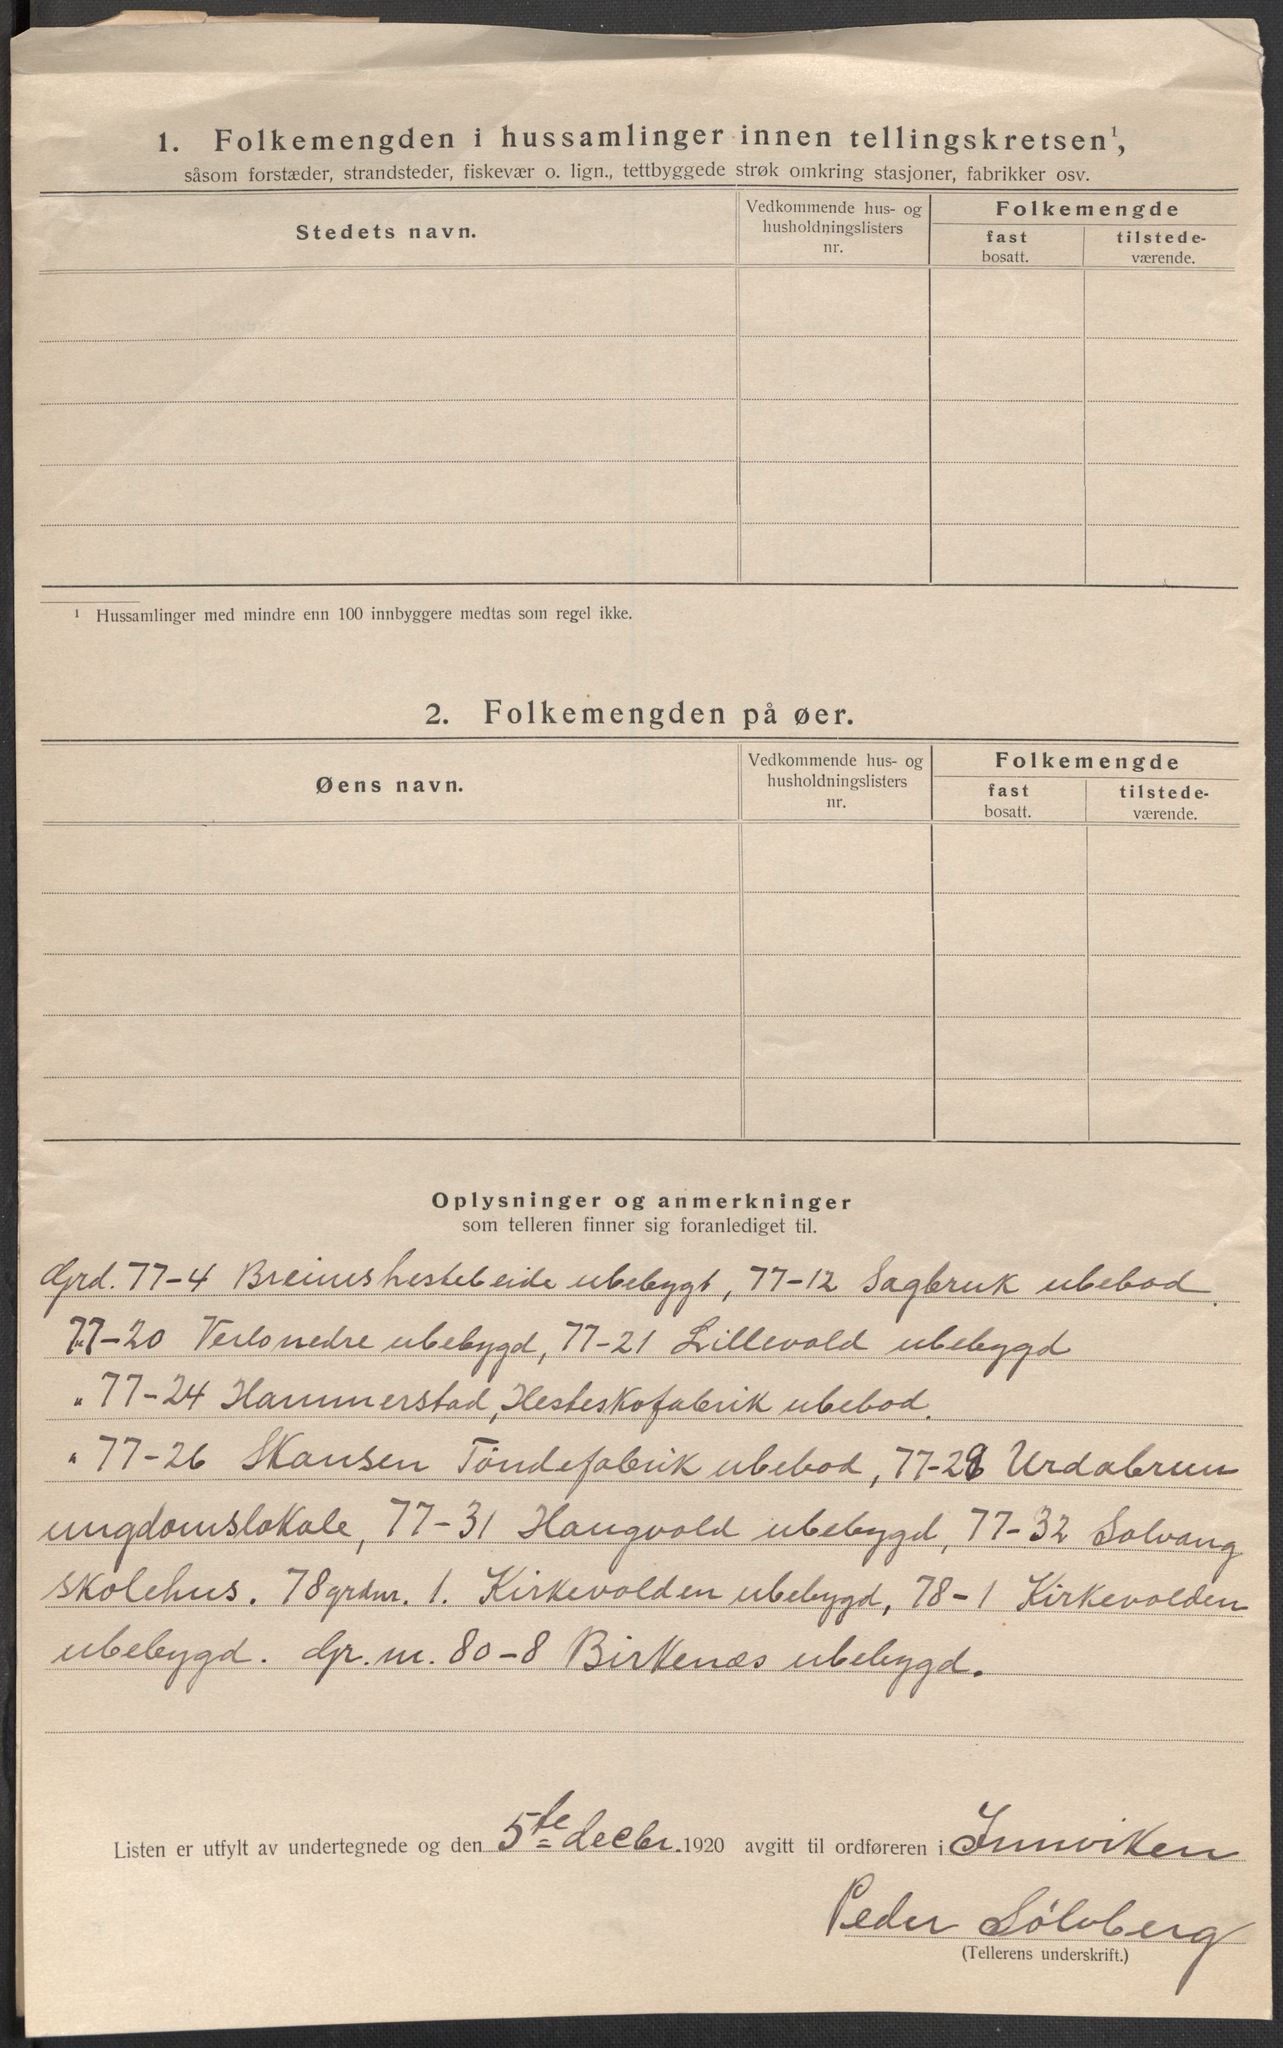 1. Folkemengden i hussamlinger innen tellingskretsen¹,
såsom forstæder, strandsteder, fiskevær o. lign., tettbyggede strøk omkring stasjoner, fabrikker osv.
Stedets navn.
Vedkommende hus- og husholdningslisters nr.
Folkemengde
fast bosatt.
tilstede-værende.
¹ Hussamlinger med mindre enn 100 innbyggere medtas som regel ikke.
2. Folkemengden på øer.
Øens navn.
Vedkommende hus- og husholdningslisters nr.
Folkemengde
fast bosatt.
tilstede-værende.
Oplysninger og anmerkninger
som telleren finner sig foranlediget til.
Grd. 77-4 Breimshestebeide ubebygt, 77-12 Sagbruk ubebod.
77-20 ubebygd, 77-21 Lillevold ubebygd
" 77-24 Hammerstad, Hesteskofabrik ubebod.
" 77-26 Skansen Töndefabrik ubebod, 77-28 Urdabrun
ungdomslokale, 77-31 Haugvold ubebygd, 77-32 Solvang
skolehus. 78 grdnr. 1. Kirkevolden ubebygd, 78-1 Kirkevolden
ubebygd. Gr. nr. 80-8 Birkenæs ubebygd.
Listen er utfylt av undertegnede og den 5te decbr. 1920 avgitt til ordføreren i Innviken
Peder Sølvberg
(Tellerens underskrift.)